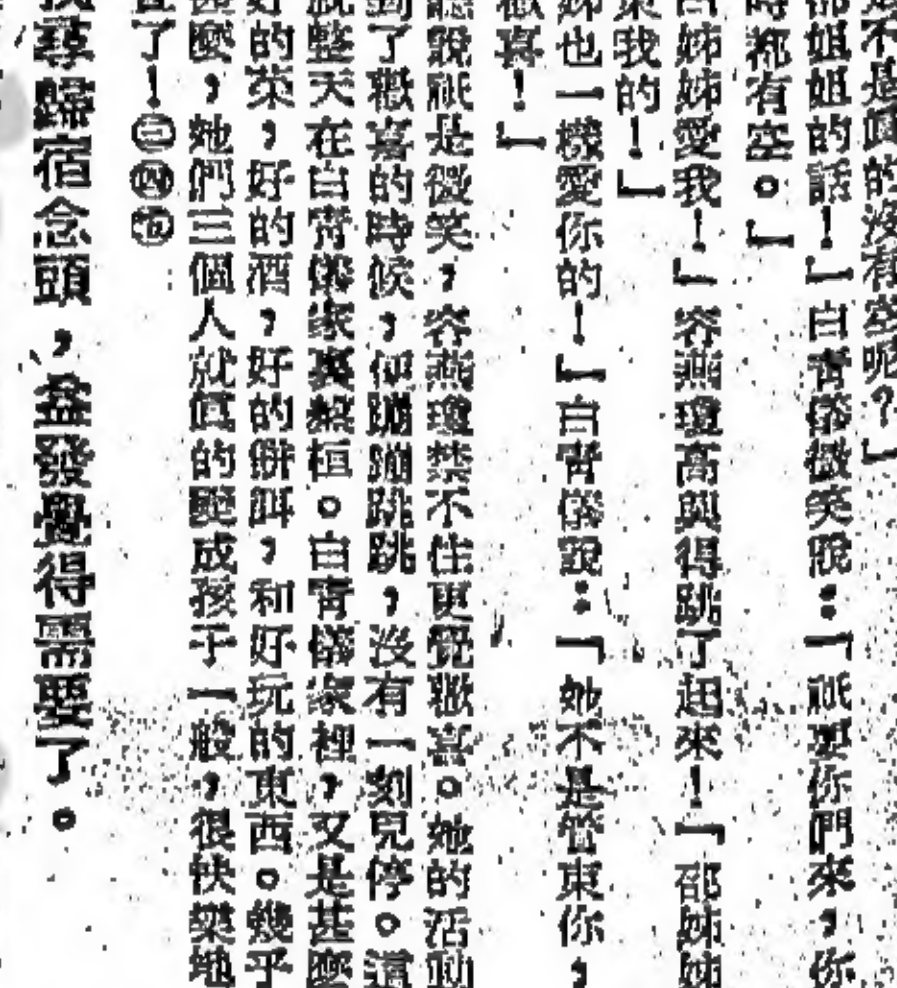 是不是真的沒有空呢？」
姐姐的話！」白霄儀微笑說：「祇要你們來，你
時都有空。」
姊姊愛我！」容燕瓊高興得跳了起來！「邵姊姊
束我的！」
姊也一樣愛你的！」白霄儀說：「她不是管束你，
歡喜！」
聽說祇是微笑，容燕瓊禁不住更覺歡喜。她的活動
到了歡喜的時候，便蹦蹦跳跳，沒有一刻兒停。這
就整天在白霄儀家裏盤桓。白霄儀家裡，又是甚麼
好的茶，好的酒，好的餅餌，和好玩的東西。幾乎
甚麼，她們三個人就真的變成孩子一般，很快樂地
了！㊂㊃㊄
找尋歸宿念頭，益發覺得需要了。